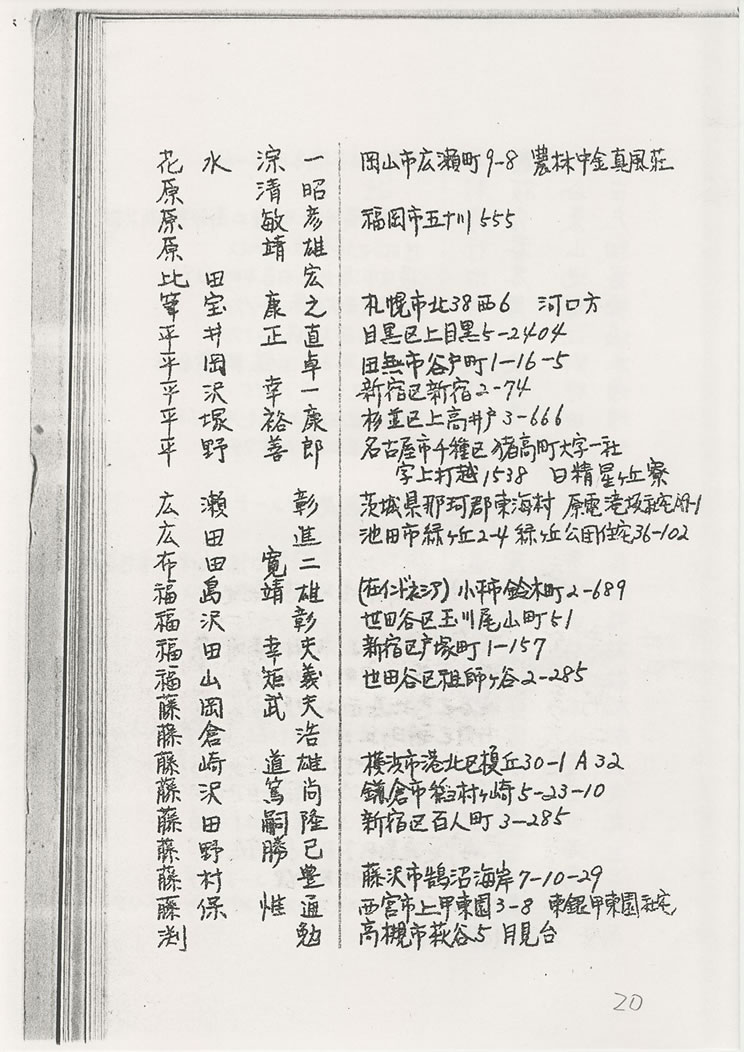 花水淙一 岡山市広瀬町9-8 農林中金真風荘
原清昭
原敏彦 福岡市五十川555
原靖雄
比田宏
筆宝康之 札幌市北38西6 河口方
平井正直 目黒区上目黒5-2404
平岡卓 田無市谷戸町1-16-5
平沢幸一 新宿区新宿2-74
平塚裕康 杉並区上高井戸3-666
平野善郎 名古屋市千種区猪高町大字一社
字上打越1538 日精星ヶ丘寮
広瀬彰 茨城県那珂郡東海村 原電滝坂社宅
広田進 池田市緑ヶ丘2-4 緑ヶ丘公団住宅36-102
布田寛二
福島靖雄 (在インドネシア) 小平市鈴木町2-689
福沢彰 世田谷区玉川尾山町51
福田幸夫 新宿区戸塚町1-157
福山矩義 世田谷区祖師ヶ谷2-285
藤岡武夫
藤倉浩
藤崎道雄 横浜市港北区榎丘30-1 A32
藤沢篤尚 鎌倉市 村ヶ崎5-23-10
藤田嗣隆 新宿区百人町3-285
藤野勝已
藤村豊 藤沢市鵠沼海岸7-10-29
藤保惟通 西宮市上甲東園3-8 東銀甲東園社宅
渕勉 高槻市萩谷5 月見台
20